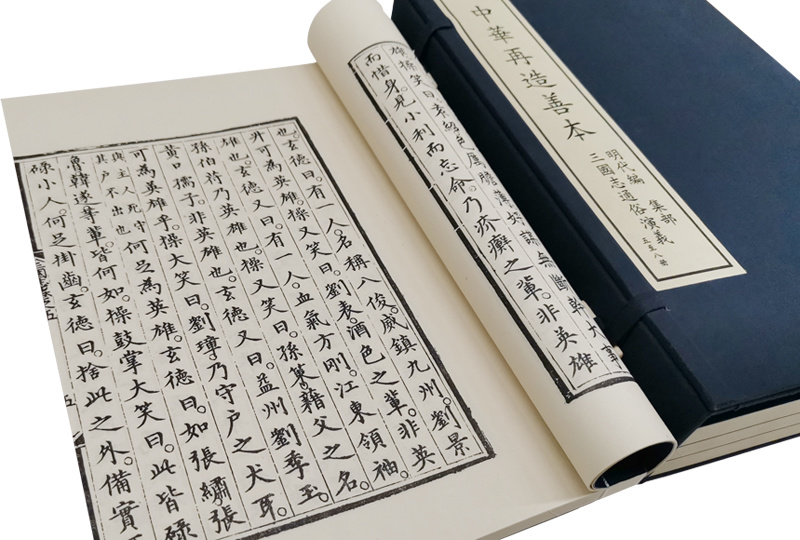 中華再造善本
明代編 集部
三國志通俗演義
五至八冊
雄操笑曰袁紹色厲膽薄好謀無斷幹大事
而惜身。見小利而忘命。乃疥癬之輩。非英雄
也。玄德曰。有一人。名稱八俊。威鎮九州。劉景
升可為英雄。操又笑曰。劉表。酒色之輩。非英
雄也。玄德又曰。有一人。血氣方剛。江東領袖。
孫伯符乃英雄也。操又笑曰。孫策藉父之名。
黃口孺子。非英雄也。玄德又曰。益州劉季玉。
可為英雄乎。操大笑曰。劉璋乃守戶之犬耳。
與主人死守
其戶不出也
何足為英雄。玄德曰。如張繡張
魯韓遂等輩。皆何如。操鼓掌大笑曰。此皆碌
碌小人。何足掛齒。玄德曰。捨此之外。備實